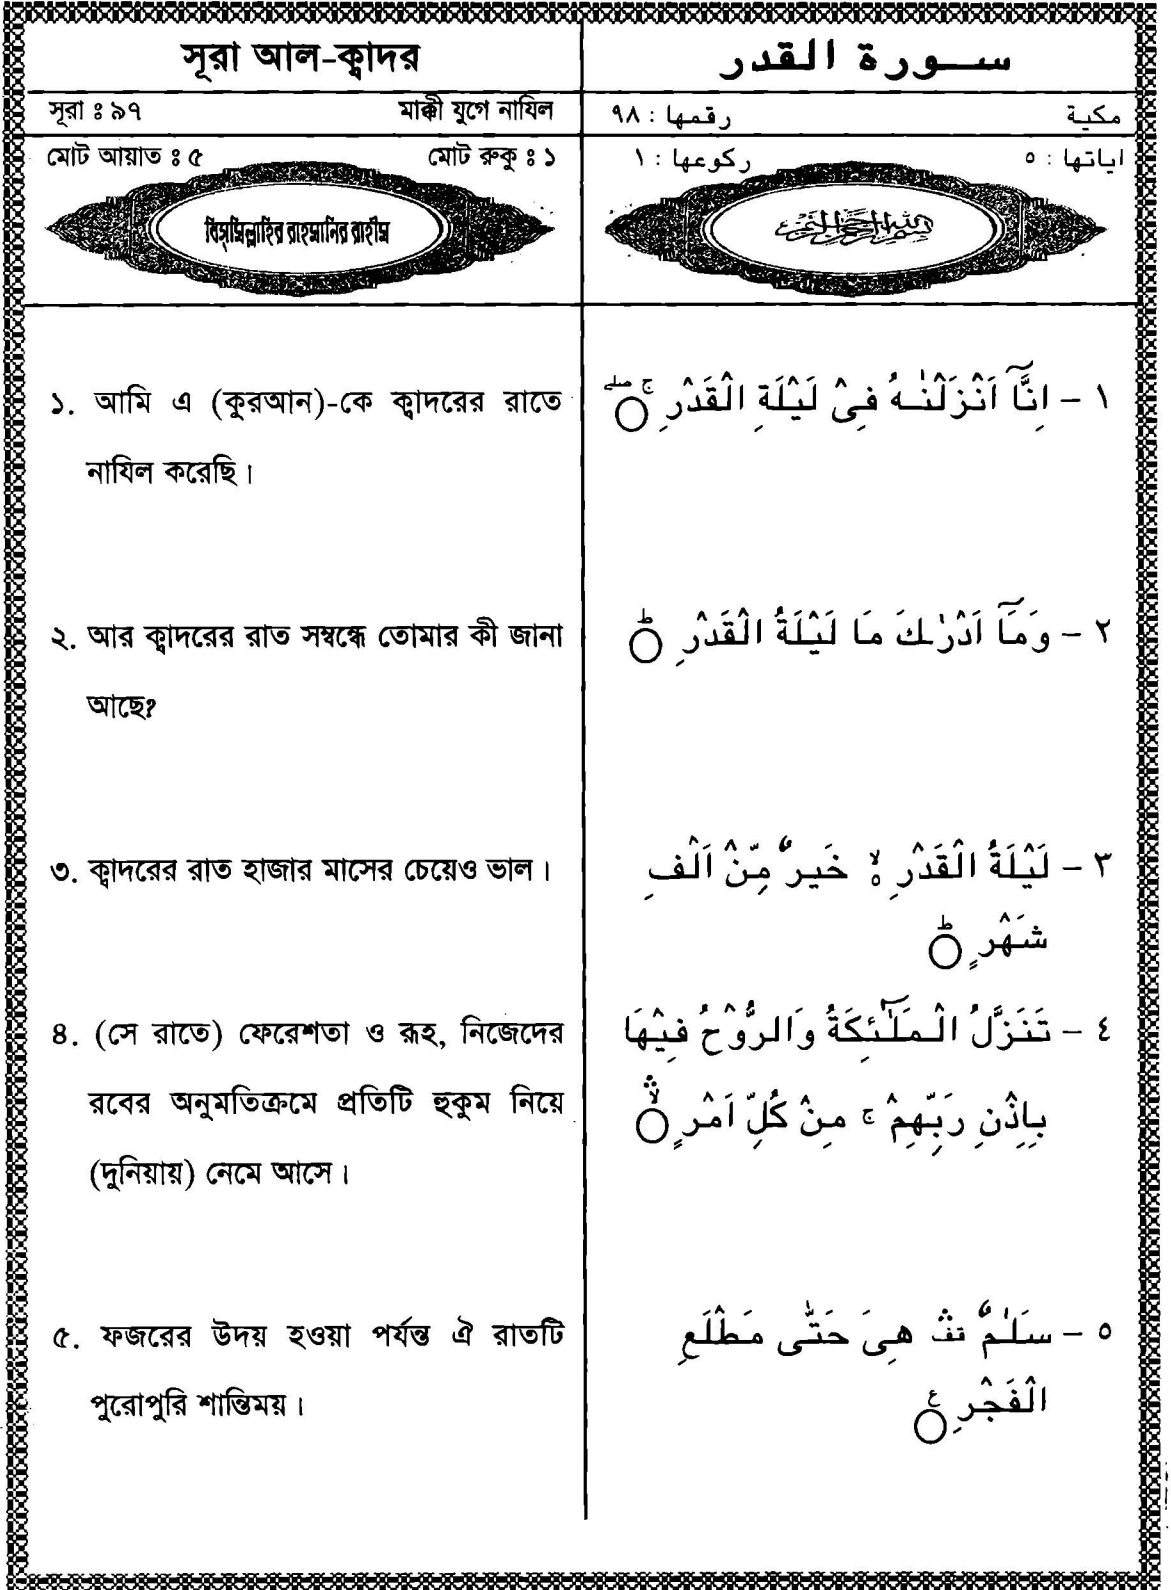 সূরা আল-ক্বাদর
সূরা ঃ ৯৭ মাক্কী যুগে নাযিল
মোট আয়াত ঃ ৫ মোট রুকু ঃ ১
বিস্‌মিল্লাহির রাহমানির রাহীম
১. আমি এ (কুরআন)-কে ক্বাদরের রাতে
নাযিল করেছি।
২. আর ক্বাদরের রাত সম্বন্ধে তোমার কী জানা
আছে?
৩. ক্বাদরের রাত হাজার মাসের চেয়েও ভাল।
৪. (সে রাতে) ফেরেশতা ও রূহ, নিজেদের
রবের অনুমতিক্রমে প্রতিটি হুকুম নিয়ে
(দুনিয়ায়) নেমে আসে।
৫. ফজরের উদয় হওয়া পর্যন্ত ঐ রাতটি
পুরোপুরি শান্তিময়।
سورة القدر
مكية رقمها : ٩٨
اياتها : ٥ ركوعها : ١
بسم الله الرحمن الرحيم
١ - اِنَّآ اَنْزَلْنٰهُ فِىْ لَيْلَةِ الْقَدْرِ ۚۖ
٢ - وَمَآ اَدْرٰىكَ مَا لَيْلَةُ الْقَدْرِ ؕ
٣ - لَيْلَةُ الْقَدْرِ ۙ خَيْرٌ مِّنْ اَلْفِ
شَهْرٍ ؕ
٤ - تَنَزَّلُ الْمَلٰٓئِكَةُ وَالرُّوْحُ فِيْهَا
بِاِذْنِ رَبِّهِمْ ۚ مِنْ كُلِّ اَمْرٍ ۛۙ
٥ - سَلٰمٌ قف هِىَ حَتّٰى مَطْلَعِ
الْفَجْرِ ع